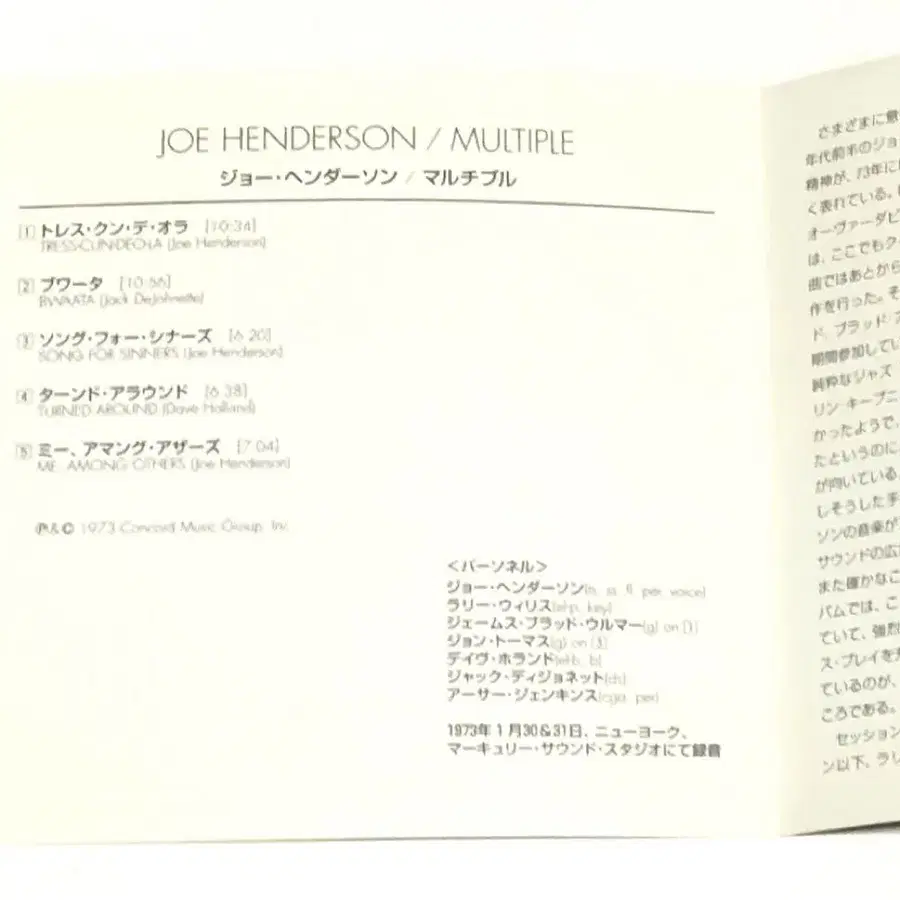 JOE HENDERSON / MULTIPLE
ジョー・ヘンダーソン / マルチプル
1 トレス・クン・デ・オラ [10:34]
TRESS-CUN-DEO-LA (Joe Henderson)
2 ブワータ [10:56]
BWAATA (Jack DeJohnette)
3 ソング・フォー・シナーズ [6:20]
SONG FOR SINNERS (Joe Henderson)
4 ターンド・アラウンド [6:38]
TURNED AROUND (Dave Holland)
5 ミー、アマング・アザーズ [7:04]
ME, AMONG OTHERS (Joe Henderson)
℗&© 1973 Concord Music Group, Inc.
<パーソネル>
ジョー・ヘンダーソン(ts, ss, fl, per, voice)
ラリー・ウィリス(el-p, key)
ジェームス・ブラッド・ウルマー(g) on [3]
ジョン・トーマス(g) on [3]
デイヴ・ホランド(el-b, b)
ジャック・ディジョネット(ds)
アーサー・ジェンキンス(cga, per)
1973年1月30&31日、ニューヨーク、
マーキュリー・サウンド・スタジオにて録音
さまざまに意
年代前半のジョー
精神が、73年に
く表れている。
オーヴァーダビ
は、ここでもク
曲ではあとから
作を行った。そ
ド、ブラッド・
期間参加してい
純粋なジャズ
リン・キープニ
かったようで、
たというのに、
が向いている。
しそうした手
ソンの音楽が
サウンドの広
また確かなこ
バムでは、こ
ていて、強烈
ス・プレイを
ているのが、
ころである。
セッション
ン以下、ラリ